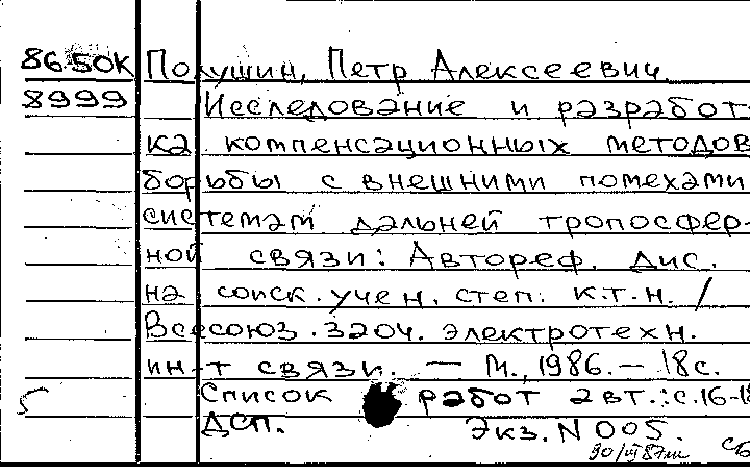 86-50К Полушин, Петр Алексеевич
8999 Исследование и разработ-
ка компенсационных методов
борьбы с внешними помехами
системам дальней тропосфер-
ной связи: Автореф. дис.
на соиск. учен. степ. к.т.н. /
Всесоюз. заоч. электротехн.
ин-т связи. — М., 1986. — 18 с.
Список работ авт.: с. 16-18
ДСП. Экз. N 005.